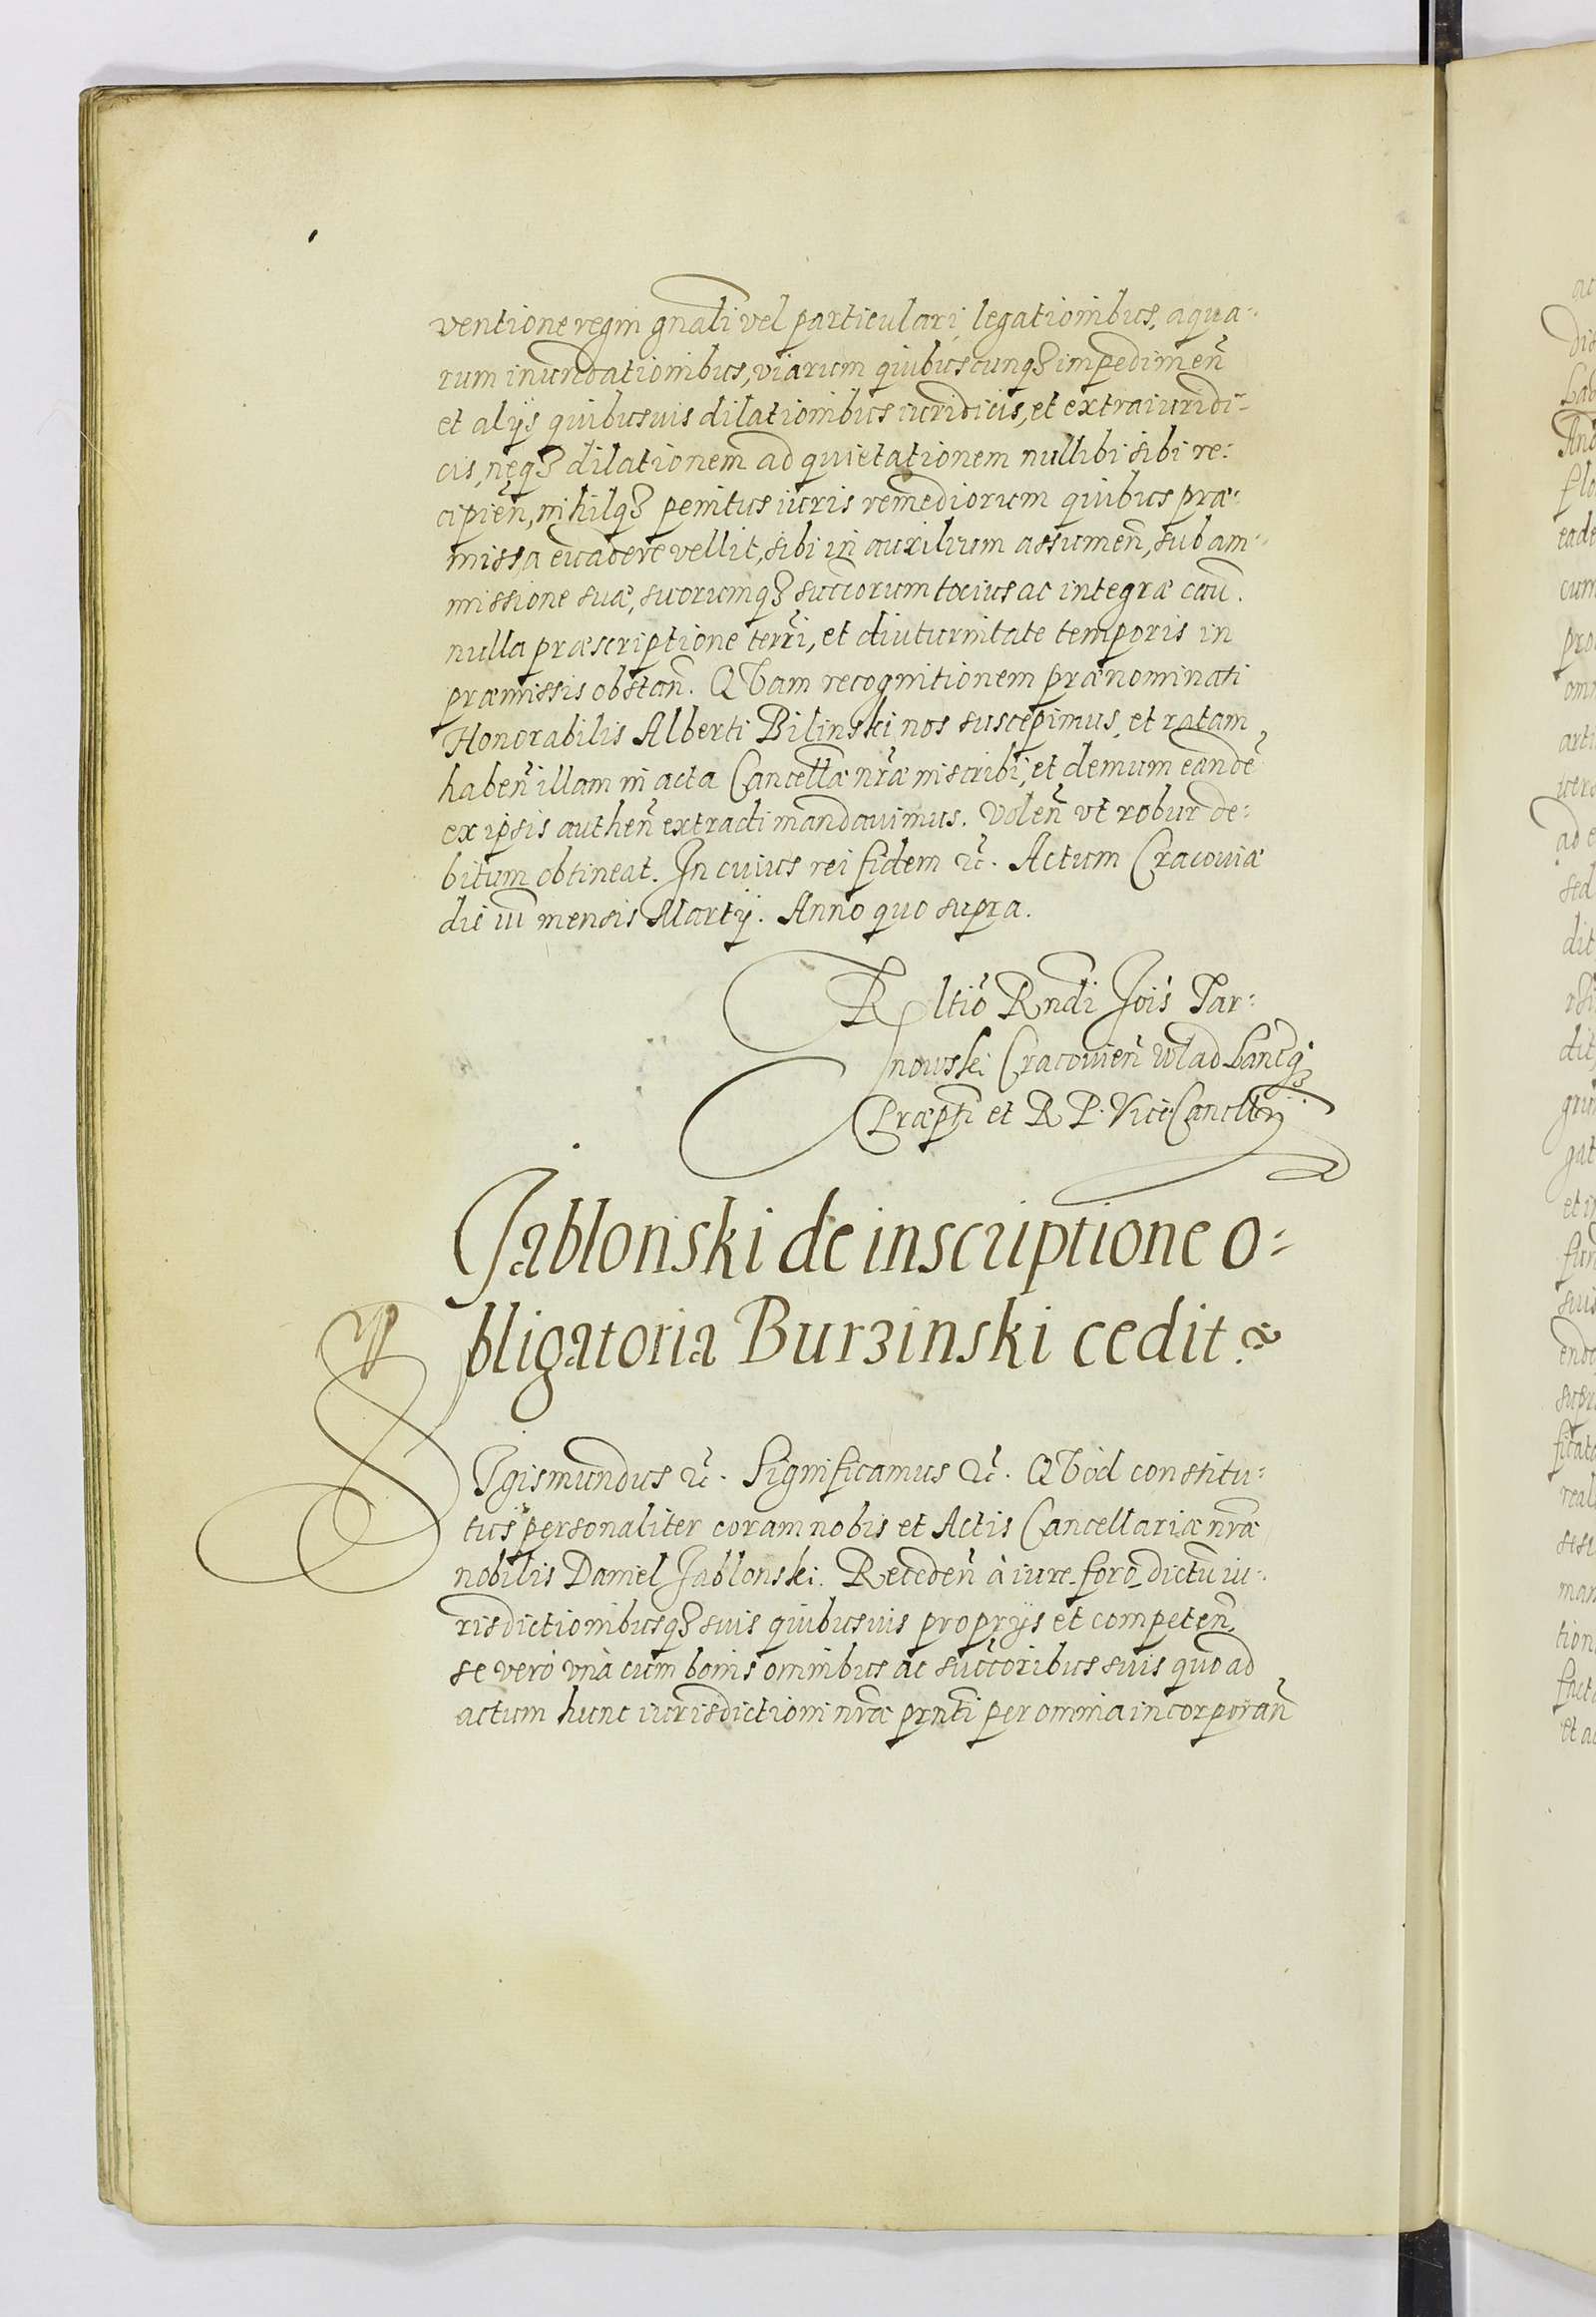 ventione regni gnali vel particulari, legationibus, aqua-
rum inundationibus, viarum quibuscunq3 impedimen̄
et alÿs quibusuis dilationibus iuridicis, et extraiuridi-
cis, neq3 dilationem ad quietationem nullibi sibi re:
cipien̄, nihilq3 penitus iuris remediorum quibus præ:
missa euadere vellit, sibi in auxilium assumen̄, sub am-
missione suæ, suorumq3 succorum tocius ac integræ cau̅.
nulla præscriptione terri, et diuturnitate temporis in
præmissis obstan̄. QVam recognitionem prænominati
Honorabilis Alberti Bilinski nos suscepimus, et ratam
haben̄ illam in acta Cancellæ nr̄æ inscribi, et demum eandē
ex ipsis authen̄ extradi mandauimus. Volen̄ vt robur de:
bitum obtineat. In cuius rei fidem &c̄. Actum Cracouiæ
die iii mensis Martÿ. Anno quo supra.
Rltio Rndi Jois Tar:
nouski Cracouien̄ Wlad Lancq3
Præpti et R P. ViceCancllrÿ
Jablonski de inscriptione o-
bligatoria Burzinski cedit.
SIgismundus &c̄. Significamus &c̄. QVod constitu:
tus personaliter coram nobis et Actis Cancellariæ nr̄æ
nobilis Daniel Jablonski. Receden̄ à iure foro dictu iu-
risdictionibusq3 suis quibusuis proprÿs et competen̄,
se vero vnà cum bonis omnibus ac succoribus suis quo ad
actum hunc iurisdictioni nr̄æ prnti per omnia incorporan̄